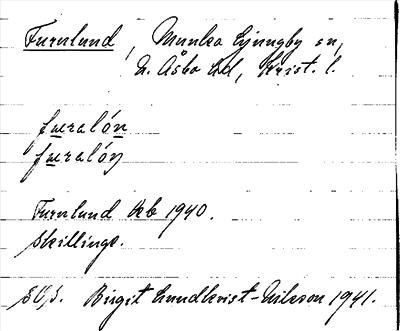 Furulund, Munka Ljungby sn,
N. Åsbo hd, Krist. l.
furalón
furalóŋ
Furulund kb 1940.
Skillinge.
Birgit Lundkvist-Nilsson 1941.